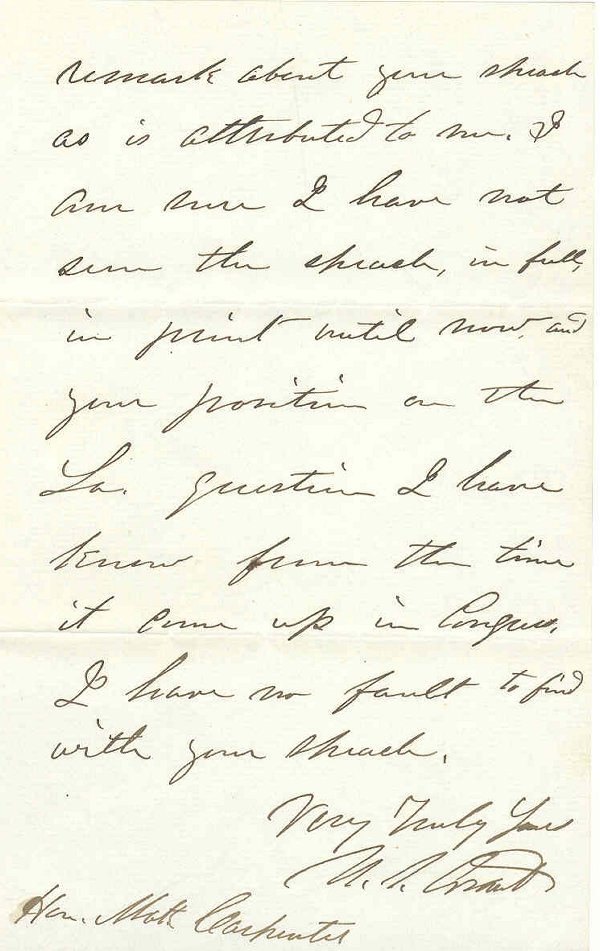 remark about your speach
as is attributed to me. I
am sure I have not
seen the speach, in full,
in print until now, and
your position on the
La. question I have
know from the time
it came up in Congress.
I have no fault to find
with your speach.
Very Truly Yours
U. S. Grant
Hon. Matt. Carpenter